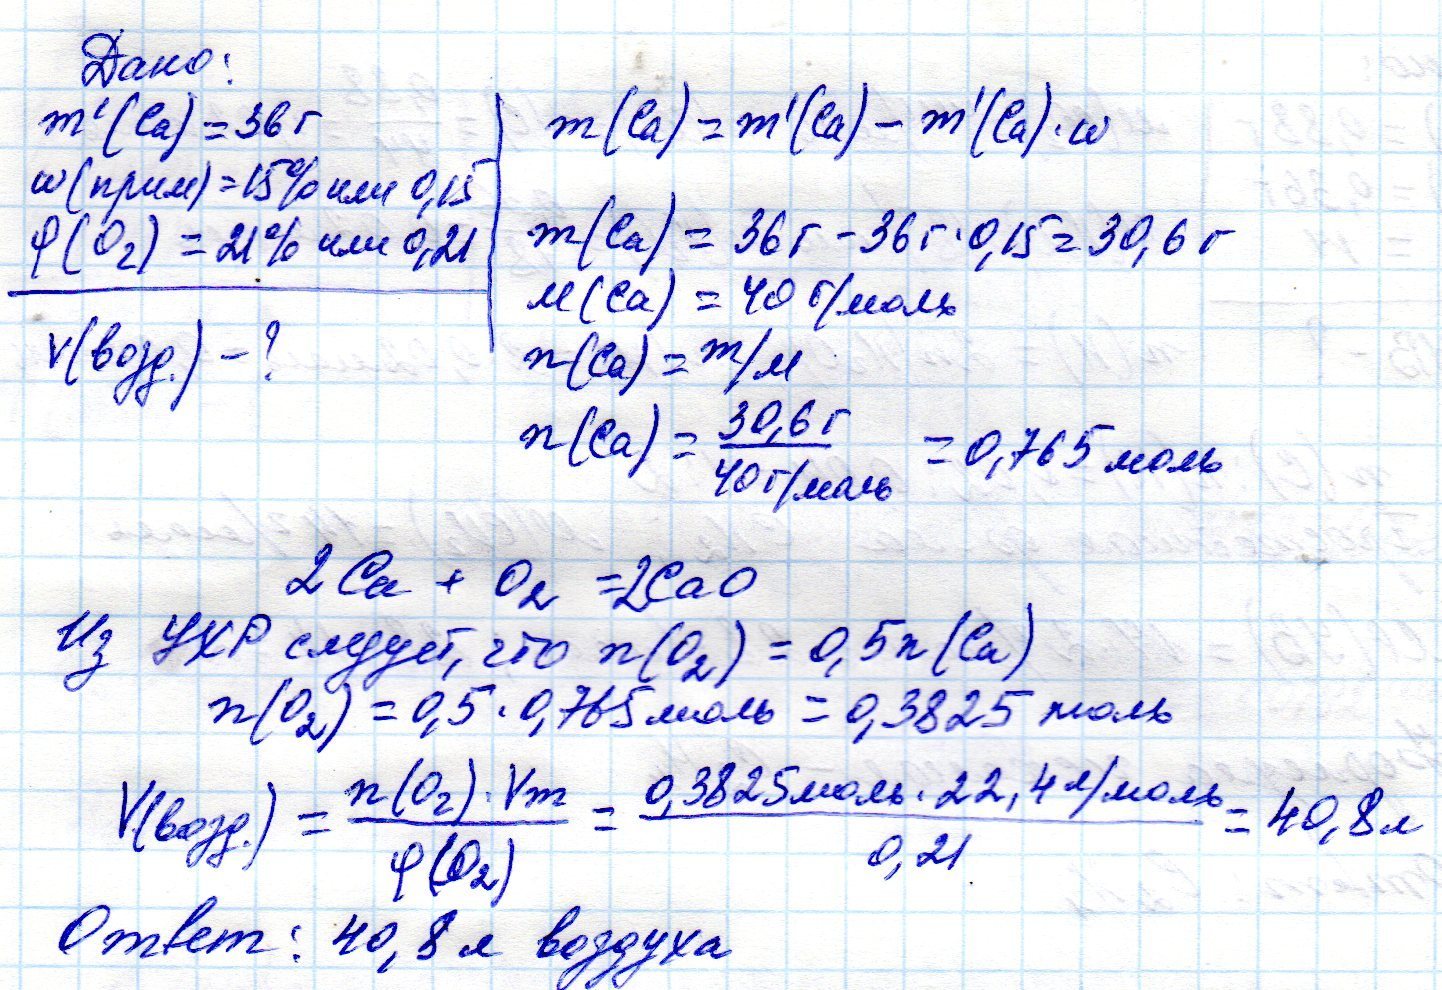 Дано:
m'(Ca) = 36 г
w(прим) = 15% или 0,15
φ(O₂) = 21% или 0,21
V(возд.) – ?
m(Ca) = m'(Ca) – m'(Ca)·w
m(Ca) = 36 г – 36 г·0,15 = 30,6 г
M(Ca) = 40 г/моль
n(Ca) = m/M
n(Ca) = 30,6 г / 40 г/моль = 0,765 моль
2Ca + O₂ = 2CaO
Из УХР следует, что n(O₂) = 0,5n(Ca)
n(O₂) = 0,5·0,765 моль = 0,3825 моль
V(возд.) = n(O₂)·Vm / φ(O₂) = 0,3825 моль·22,4 л/моль / 0,21 = 40,8 л
Ответ: 40,8 л воздуха